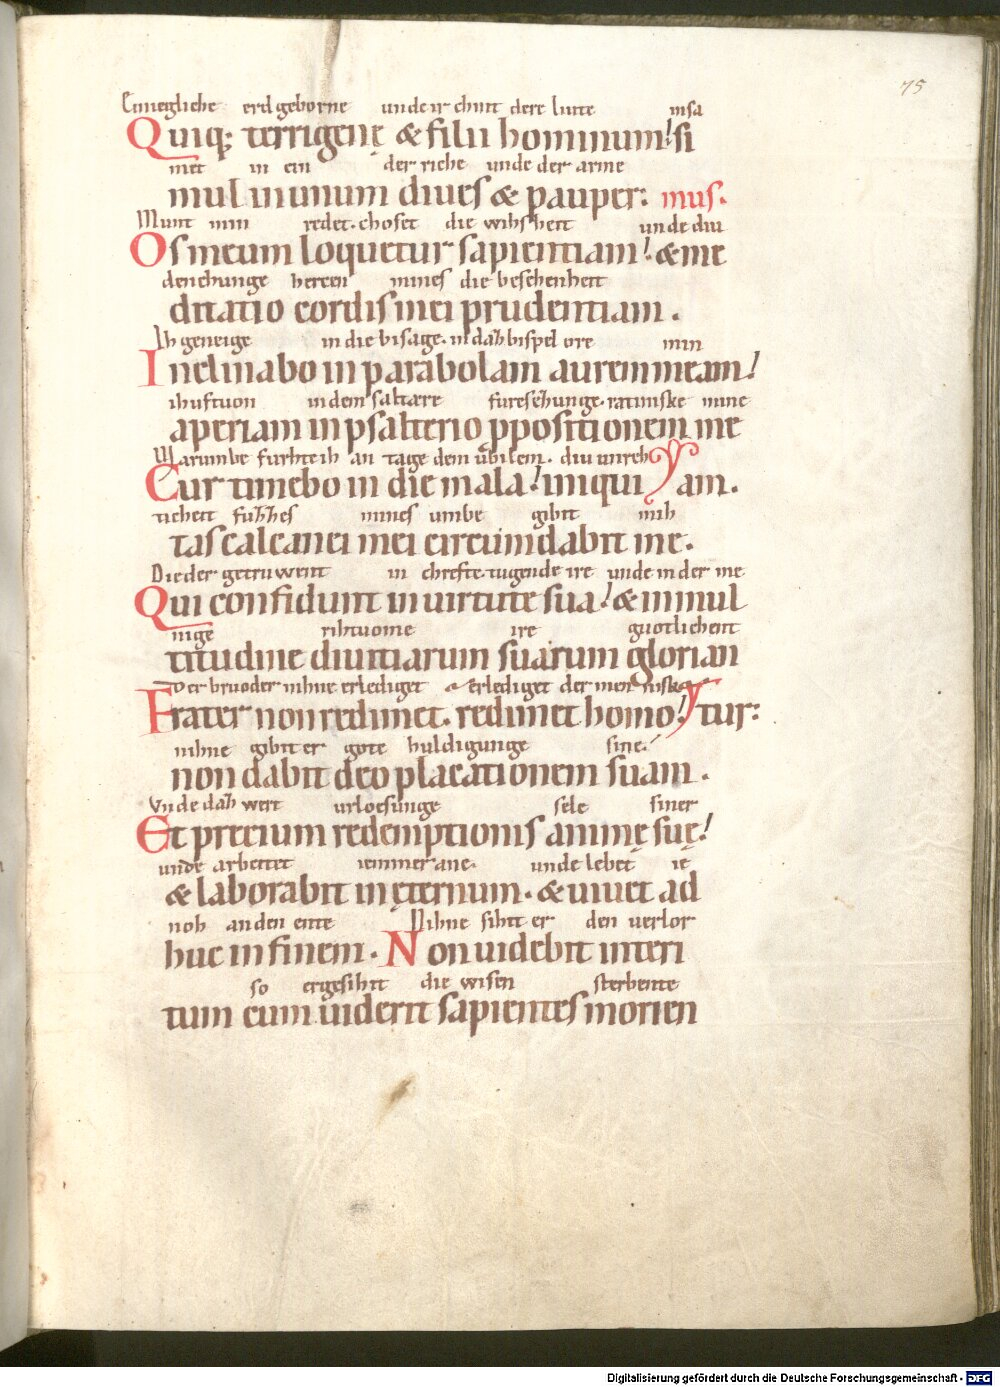 75
Einiegliche erdgeborne unde ir chint dere liute insa
Quiq; terrigenę & filii hominum! si
met in ein der riche unde der arme
mul in unum diues & pauper: mus.
Munt min redet. choset die wihsheit unde diu
Os meum loquetur sapientiam! & me
denchunge hercen mines die bescheheit
ditatio cordis mei prudentiam.
Ih geneige in die bisage. in daz bispel ore min
Inclinabo in parabolam aurem meam!
ih uftuon in dem saltare furesezunge. ratinske mine
aperiam in psalterio ppositionem me
Warumbe furhte ih an tage dem ubilem. diu unreh
Cur timebo in die mala! iniqui am.
ticheit fuzzes mines umbe gibit mih
tas calcanei mei circumdabit me.
Die der getruwent in chrefte. tugende ire unde in der me
Qui confidunt in uirtute sua! & in mul
nige rihtuome ire guotlichent
titudine diuitiarum suarum glorian
Der bruoder nihne erlediget erlediget der mennisko
Frater non redimet. redimet homo! tur:
nihne gibit er gote huldigunge sine.
non dabit deo placationem suam.
Vnde daz wert urloesunge sele siner
Et precium redemptionis animę suę!
unde arbeitet iemmer ane. unde lebet ie
& laborabit in ęternum. & uiuet ad
noh an den ente Nihne sihit er den verlor
huc in finem. Non uidebit interi
so ergesihit die wisen sterbente
tum cum uiderit sapientes morien
Digitalisierung gefördert durch die Deutsche Forschungsgemeinschaft - DFG